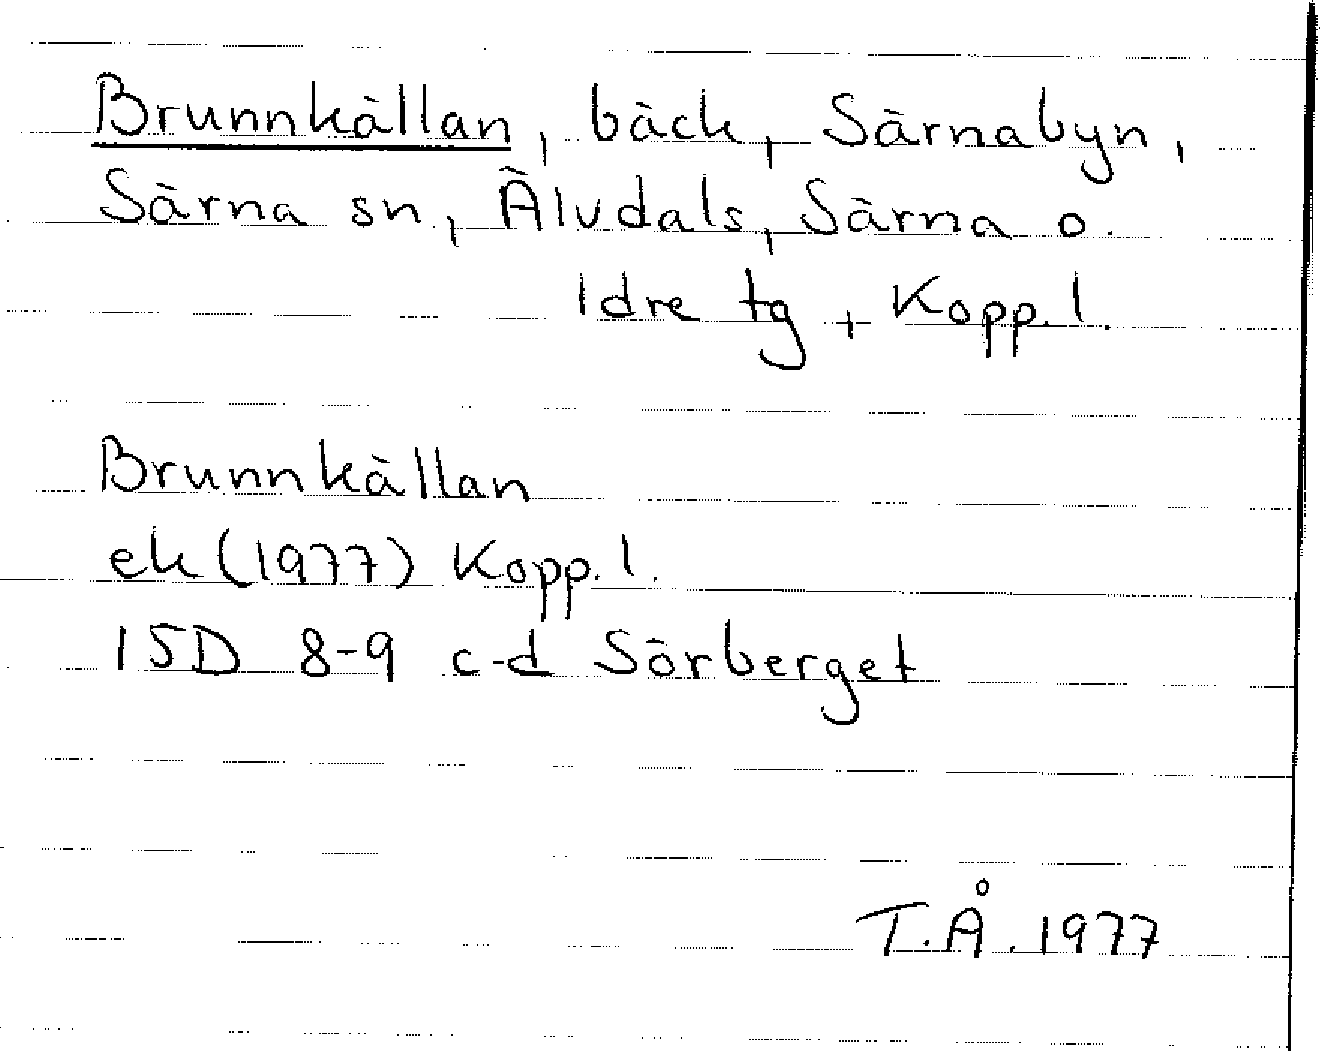 Brunnkällan, bäck, Särnabyn,
Särna sn, Älvdals, Särna o.
Idre tg + Kopp. l.
Brunnkällan
ek (1977) Kopp. l.
15D 8-9 c-d Sörberget
T.Å. 1977